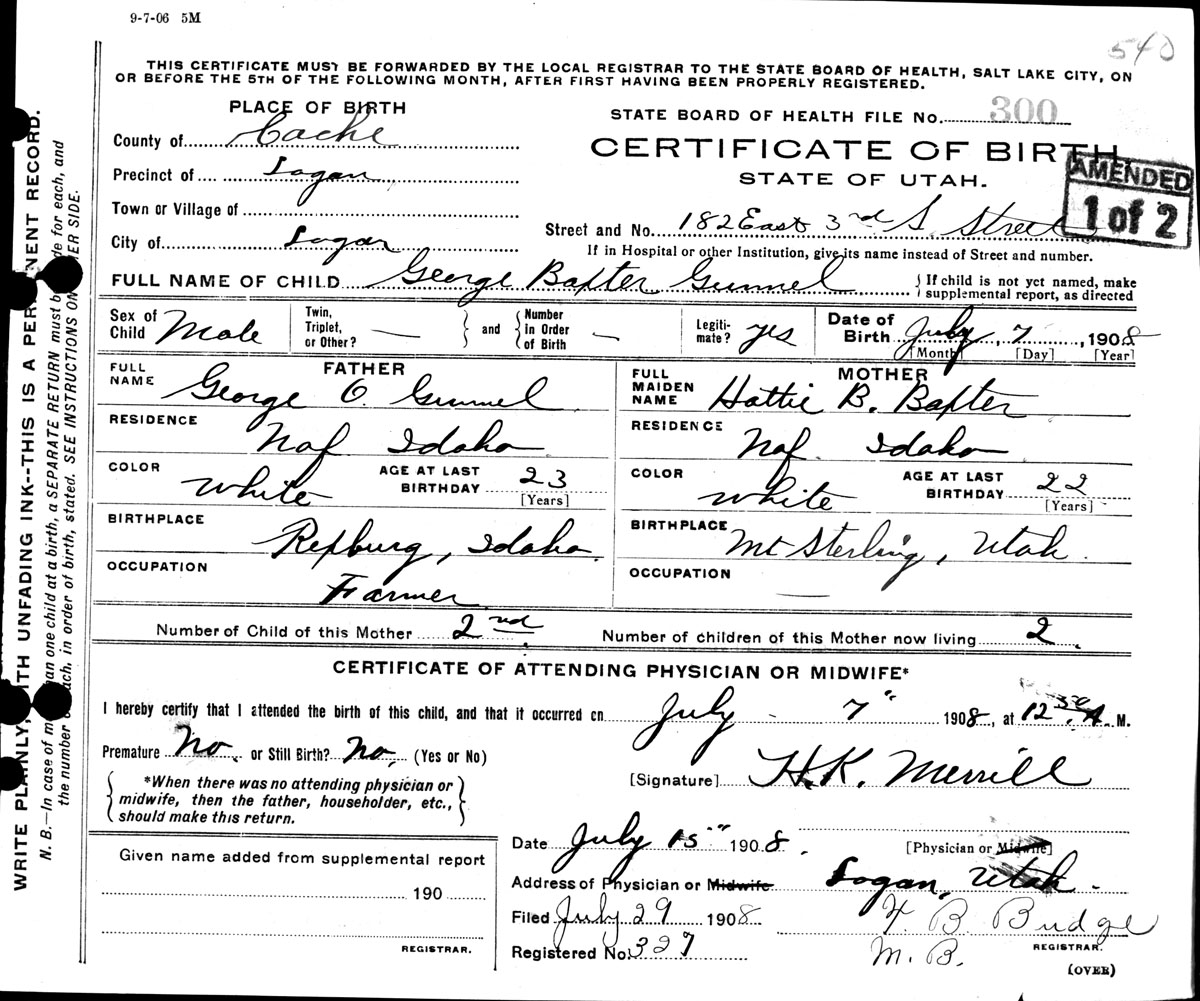 9-7-06 5M
540
THIS CERTIFICATE MUST BE FORWARDED BY THE LOCAL REGISTRAR TO THE STATE BOARD OF HEALTH, SALT LAKE CITY, ON
OR BEFORE THE 5TH OF THE FOLLOWING MONTH, AFTER FIRST HAVING BEEN PROPERLY REGISTERED.
PLACE OF BIRTH
STATE BOARD OF HEALTH FILE No. 300
County of Cache
CERTIFICATE OF BIRTH
STATE OF UTAH.
AMENDED
1 of 2
Precinct of Logan
Town or Village of
Street and No. 182 East 3rd S. Street
City of Logan
If in Hospital or other Institution, give its name instead of Street and number.
FULL NAME OF CHILD George Baxter Gunnel
If child is not yet named, make supplemental report, as directed
Sex of Child Male
Twin, Triplet, or Other? —
and
Number in Order of Birth —
Legiti-mate? yes
Date of Birth July 7, 1908
[Month] [Day] [Year]
FATHER
FULL NAME George O. Gunnel
RESIDENCE Naf Idaho
COLOR White
AGE AT LAST BIRTHDAY 23
[Years]
BIRTHPLACE Rexburg, Idaho.
OCCUPATION Farmer
MOTHER
FULL MAIDEN NAME Hattie B. Baxter
RESIDENCE Naf. Idaho
COLOR White
AGE AT LAST BIRTHDAY 22
[Years]
BIRTHPLACE Mt Sterling, Utah.
OCCUPATION —
Number of Child of this Mother 2nd
Number of children of this Mother now living 2
CERTIFICATE OF ATTENDING PHYSICIAN OR MIDWIFE*
I hereby certify that I attended the birth of this child, and that it occurred on July 7" 1908, at 12 30 A. M.
Premature No. or Still Birth? No. (Yes or No)
*When there was no attending physician or
midwife, then the father, householder, etc.,
should make this return.
[Signature] H.K. Merrill
Date July 15" 1908.
[Physician or Midwife]
Address of Physician or Midwife Logan, Utah.
Filed July 29 1908
Registered No. 327
B. Budge
M. B.
REGISTRAR.
(OVER)
Given name added from supplemental report
190
REGISTRAR.
WRITE PLAINLY, WITH UNFADING INK--THIS IS A PERMANENT RECORD.
N. B.—In case of more than one child at a birth, a SEPARATE RETURN must be made for each, and
the number of each, in order of birth, stated. SEE INSTRUCTIONS ON OTHER SIDE.